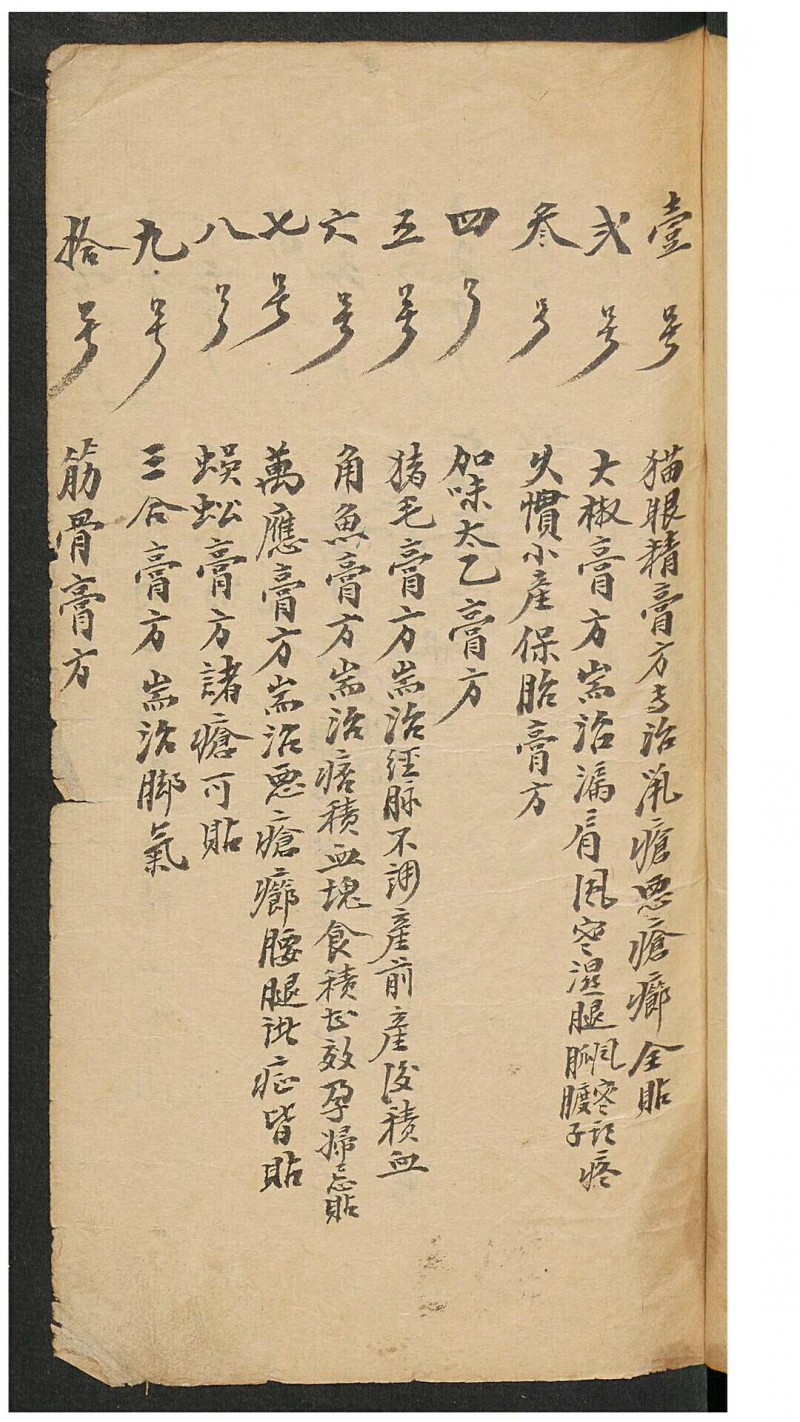 壹号 猫眼精膏方专治鼠瘡恶瘡癤全貼
弍号 大椒膏方耑治漏肩风寒湿腿风寒頭疼
胍臒子
叁号 久慣小產保胎膏方
四号 加味太乙膏方
五号 猪毛膏方耑治经脉不调產前產后積血
六号 角魚膏方耑治痞積血塊食積甚效孕婦忌貼
七号 萬應膏方耑治恶瘡癤腰腿诸症皆貼
八号 蜈蚣膏方諸瘡可貼
九号 三合膏方耑治脚氣
拾号 筋骨膏方